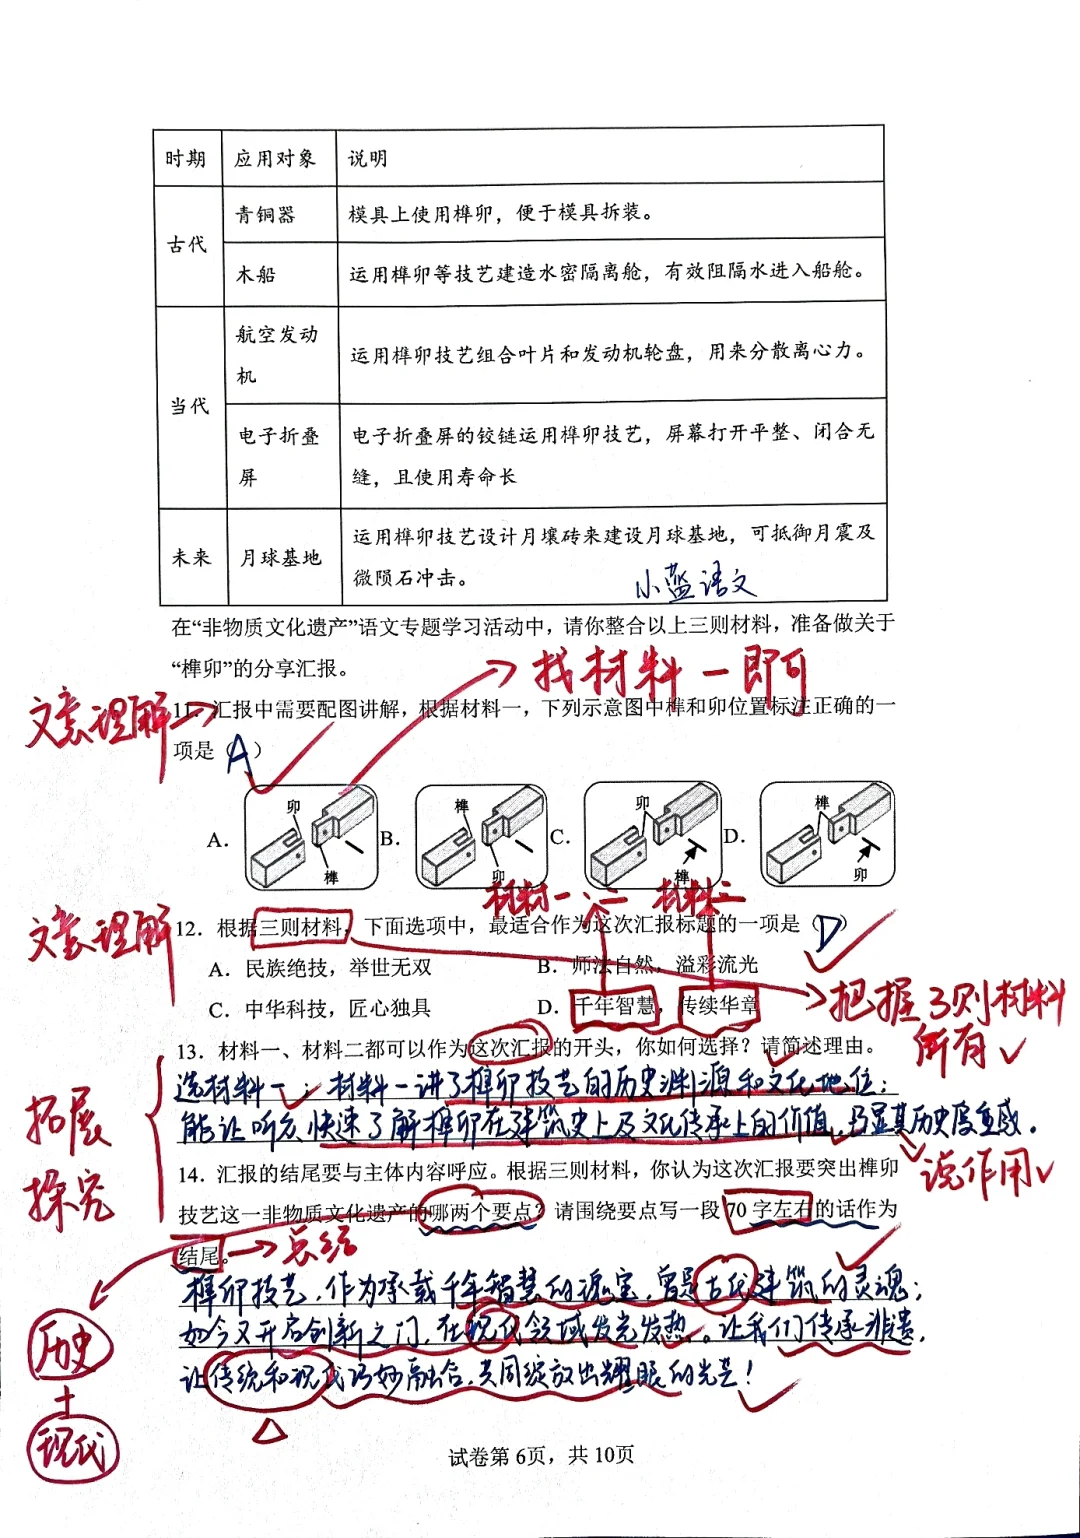 时期 应用对象 说明
古代 青铜器 模具上使用榫卯，便于模具拆装。
木船 运用榫卯等技艺建造水密隔离舱，有效阻隔水进入船舱。
当代 航空发动机 运用榫卯技艺组合叶片和发动机轮盘，用来分散离心力。
电子折叠屏 电子折叠屏的铰链运用榫卯技艺，屏幕打开平整、闭合无
缝，且使用寿命长
未来 月球基地 运用榫卯技艺设计月壤砖来建设月球基地，可抵御月震及
微陨石冲击。
小蓝语文
在“非物质文化遗产”语文专题学习活动中，请你整合以上三则材料，准备做关于
“榫卯”的分享汇报。
找材料一即可
文意理解
11．汇报中需要配图讲解，根据材料一，下列示意图中榫和卯位置标注正确的一
项是（A）
A． 卯 榫 B． 榫 卯 C． 卯 榫 D． 榫 卯
材料一、二 材料三
文意理解
12．根据三则材料，下面选项中，最适合作为这次汇报标题的一项是（D）
A．民族绝技，举世无双 B．师法自然，溢彩流光
C．中华科技，匠心独具 D．千年智慧，传续华章
把握3则材料
所有
13．材料一、材料二都可以作为这次汇报的开头，你如何选择？请简述理由。
选材料一；材料一讲了榫卯技艺的历史渊源和文化地位；
能让听众快速了解榫卯在建筑史上及文化传承上的价值，凸显其历史厚重感．
拓展
探究
说作用
14．汇报的结尾要与主体内容呼应。根据三则材料，你认为这次汇报要突出榫卯
技艺这一非物质文化遗产的哪两个要点？请围绕要点写一段 70 字左右的话作为
结尾。
总结
榫卯技艺，作为承载千年智慧的瑰宝，曾是古代建筑的灵魂；
如今又开启创新之门，在现代领域发光发热。让我们传承非遗，
让传统和现代巧妙融合，共同绽放出耀眼的光芒！
历史
+
现代
试卷第 6页，共 10页